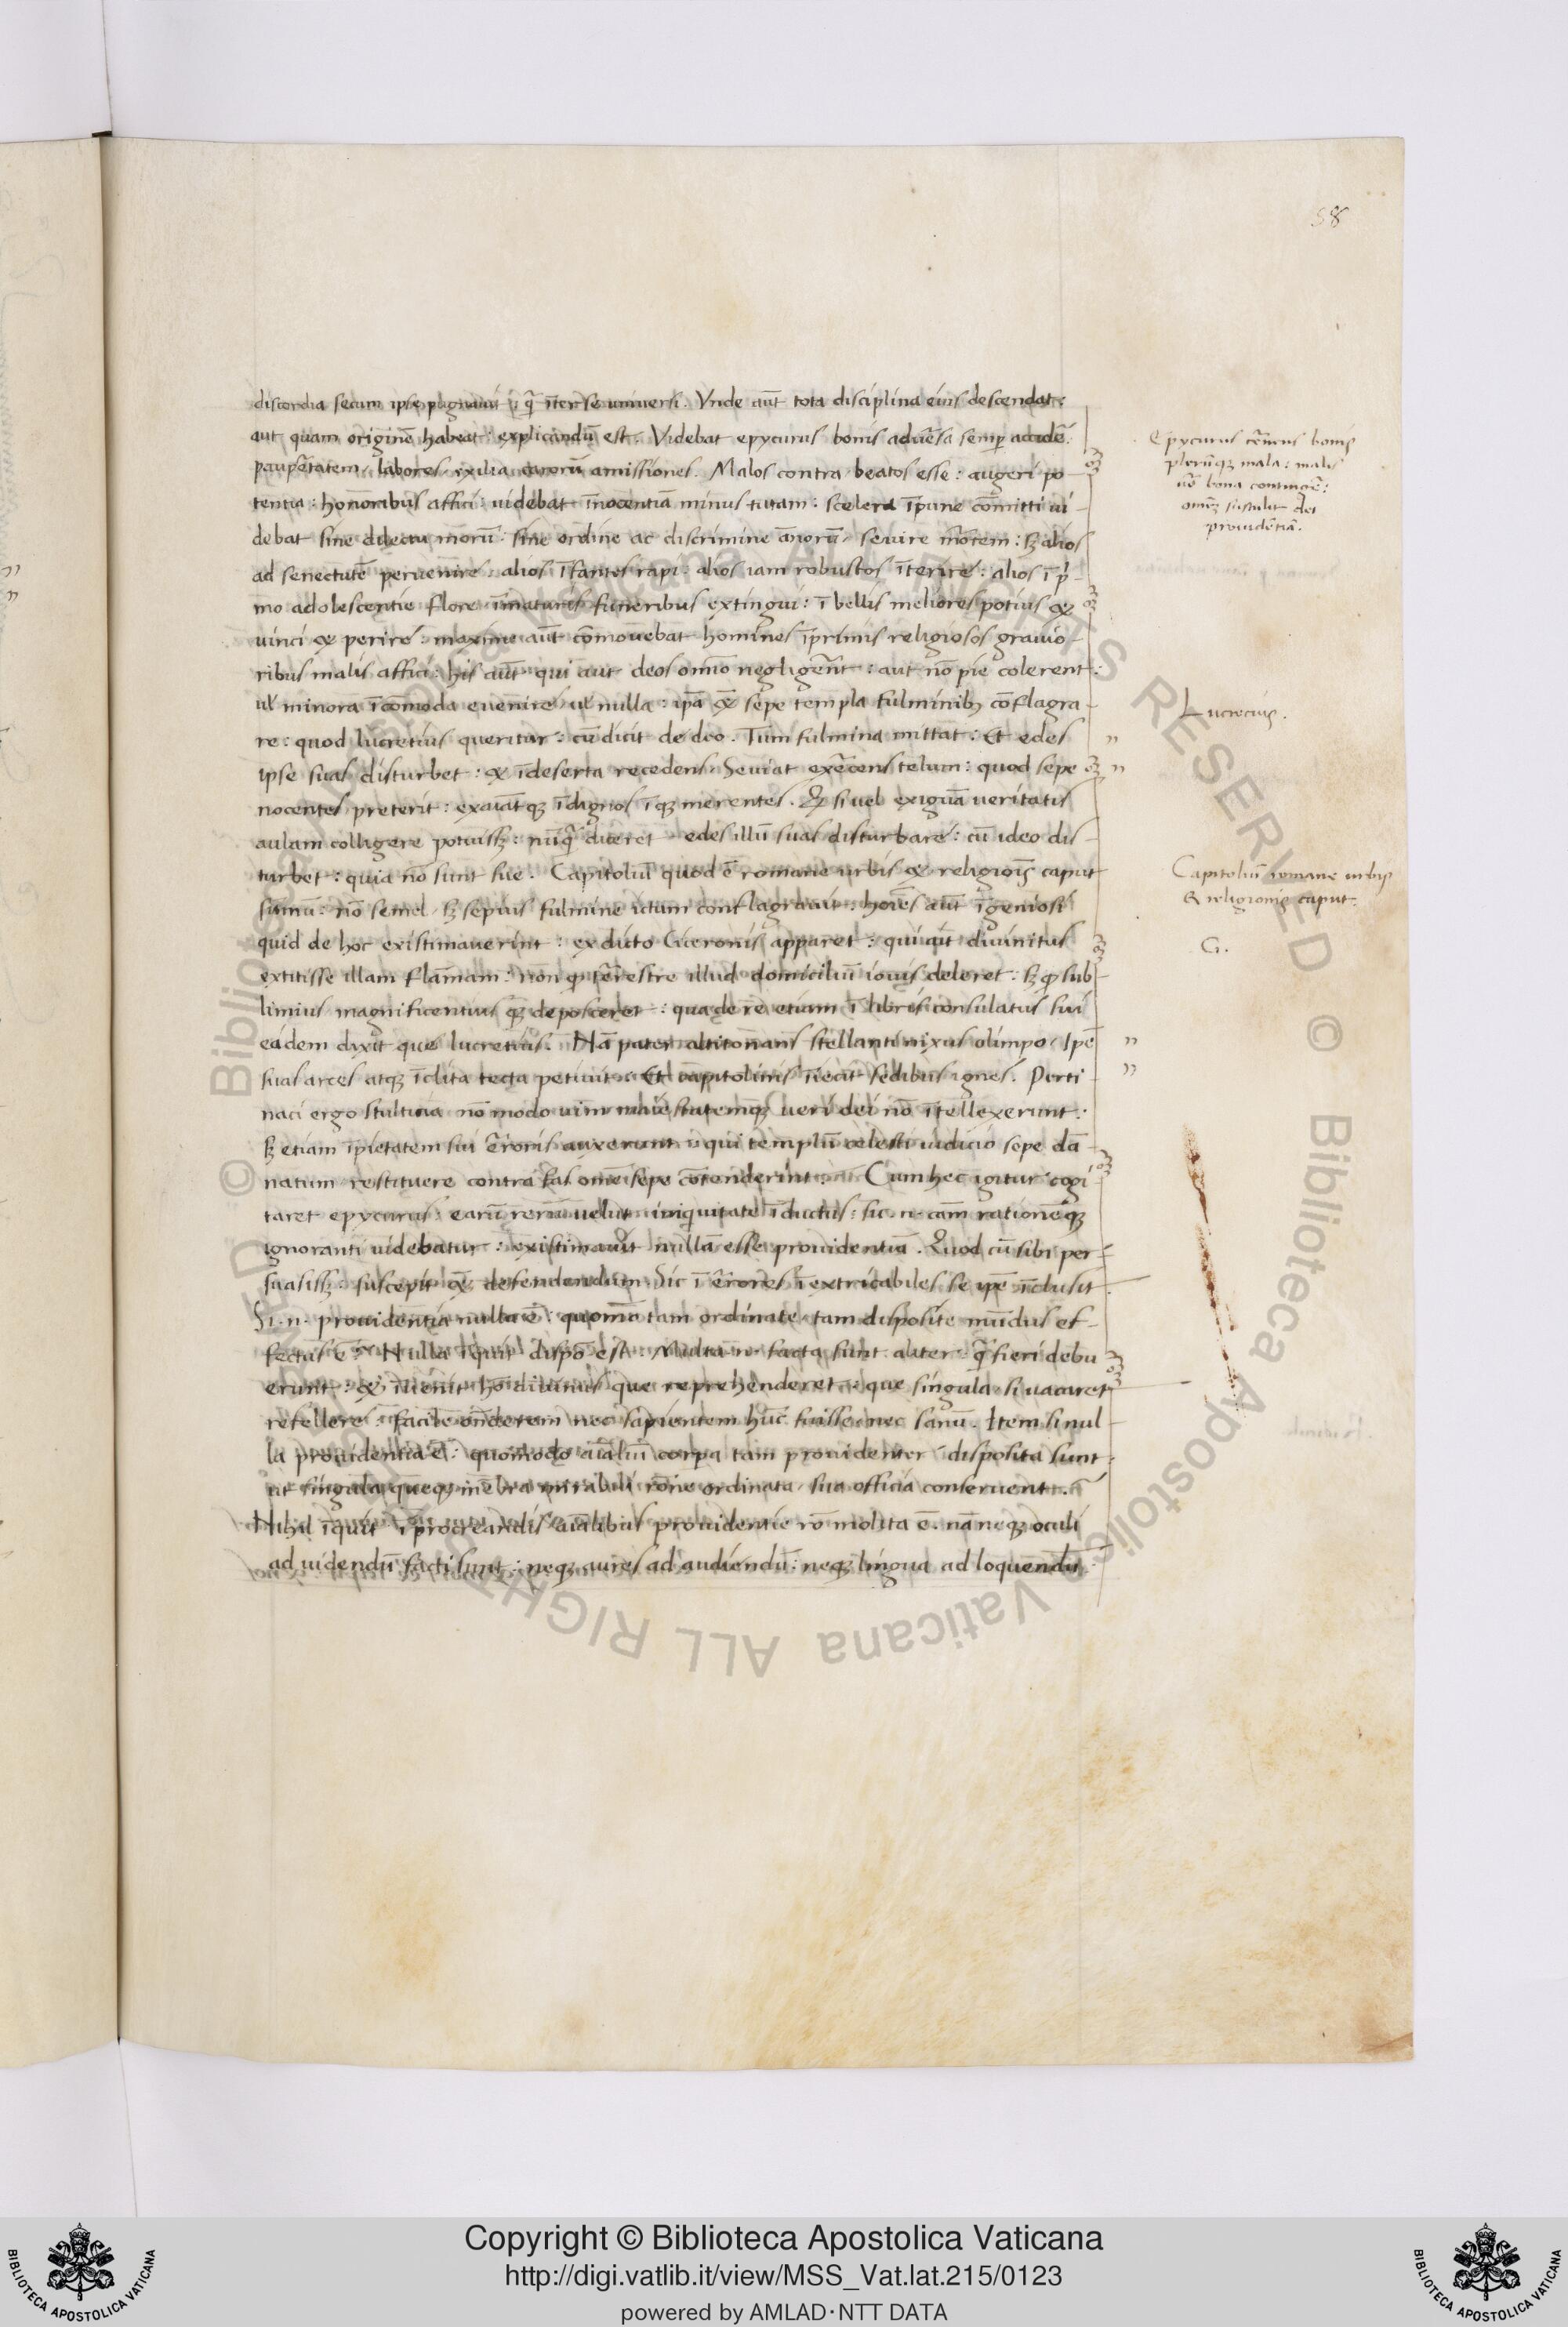 58
discordia secum ipse pugnauit ꝙ̃ īter se uniuersi. Vnde aūt tota disciplina eius descendat:
aut quam originē habeat: explicandū est. Videbat epycurus bonis aduẽsa semꝑ accidẽ.
paupẽtatem. labores. exilia carorū amissiones. Malos contra beatos esse: augeri po-
tentia: honoribus affici: uidebat īnocentiā minus tutam: scelera īpune cōmitti ui-
debat sine dilectu morū: sine ordine ac discrimine ānorū. seuire mōrtem: sꝫ alios
ad senectutē peruenire: alios īfantes rapi: alios iam robustos īterire: alios ī pͥ-
mo adolescentie flore īmaturis funeribus extingui: ī bellis meliores potius &
uinci & perire: maxime aūt cōmouebat homines īprimis religiosos grauio-
ribus malis affici: his aūt qui aut deos omīo negligẽnt: aut nō pie colerent:
uł minora īcōmoda euenire uł nulla: ip̄a qꝫ sepe templa fulminibꝫ cōflagra-
re: quod lucretius queritur: cū dicit de deo. Tum fulmina mittat: Et edes
ipse suas disturbet: & ī deserta recedens. Seuiat exẽcens telum: quod sepe
nocentes preterit: exaīatqꝫ īdignos īqꝫ merentes. Q̊ si uel exiguā ueritatis
aulam colligere potuissꝫ: nūꝙ̃ diceret edes illū suas disturbare: cū ideo dis-
turbet: quia nō sunt sue. Capitoliū quod ē romane urbis & religiōis caput
sūmū: nō semel sꝫ sepius fulmine ictum conflagrauit: hoīes aūt īgeniosi
quid de hoc existimauerint: ex dicto Ciceronis apparet: qui ait diuinitus
extitisse illam flāmam: non ꝙ tẽrestre illud domiciliū iouis deleret: sꝫ ꝙ sub-
limius magnificentius qꝫ deposceret: qua de re etiam ī libris consulatus sui
eadem dixit que lucretius. Nā pater altitonans stellanti nixus olimpo. Ipē
suas arces atqꝫ īclita tecta petiuit. Et capitolinis īiecit sedibus ignes. Perti-
naci ergo stultitia nō modo uim maiestatemqꝫ ueri dei nō ītellexerunt:
sꝫ etiam īpietatem sui ẽroris auxerunt: qui templū celesti iudicio sepe dā-
natum restituere contra fas omē sepe cōtenderint. Cum hec igitur cogi-
taret epycurus: earū rerū uelut iniquitate īductus: sic .n. cām rationēqꝫ
ignoranti uidebatur: existimauit nullā esse prouidentiā. Quod cū sibi per-
suasissꝫ: suscepit qꝫ defendendum. Sic ī ẽrores īextricabiles se ipē īclusit.
Si .n. prouidentia nulla ē: quomō tam ordinate. tam disposite mūdus ef-
fectus ē? Nulla īquit dispō est. Multa .n. facta sunt aliter ꝙ̃ fieri debu
erunt: & īuenit hō diuinus que reprehenderet: que singula si uacaret
refellere facile onderem nec sapientem hūc fuisse nec sanū. Item si nul-
la prouidentia ē: quomodo aīaliū corpa tam prouidenter disposita sunt:
ut singula queqꝫ mēbra mirabili rōne ordinata. sua officia conseruent.
Nihil īquit ī procreandis aīalibus prouidentie rō molita ē. nā neqꝫ oculi
ad uidendū facti sunt: neqꝫ aures ad audiendū: neqꝫ lingua ad loquendū:
Epycurus cẽnens bonis
plerūqꝫ mala: malis
uō bona contingẽ:
omēꝫ sustulit dei
prouidētiā.
Lucrecius.
Capitoliū romane urbis
& religionis caput.
Ci.
Copyright © Biblioteca Apostolica Vaticana
http://digi.vatlib.it/view/MSS_Vat.lat.215/0123
powered by AMLAD·NTT DATA
BIBLIOTECA APOSTOLICA VATICANA
BIBLIOTECA APOSTOLICA VATICANA
© Biblioteca Apostolica Vaticana ALL RIGHTS RESERVED
© Biblioteca Apostolica Vaticana ALL RIGHTS RESERVED